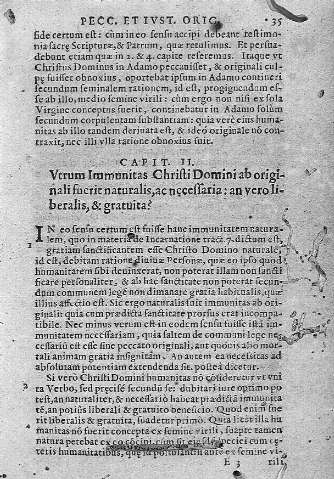 PECC. ET IVST. ORIG. 35
fide certum est: cùm in eo sensu accipi debeant testimo
nia sacræ Scripturæ, & Patrum, quæ retulimus. Et persua
debunt etiam quæ in 2. & 4. capite referemus. Itaque vt
Christus Dominus in Adamo peccauisset, & originali cul
pę fuisset obnoxius, oportebat ipsum in Adamo contineri
secundum seminalem rationem, id est, progignendum es
se ab illo, medio semine virili: cùm ergo non nisi ex sola
Virgine conceptus fuerit, continebatur in Adamo solùm
secundum corpulentam substantiam: quia verè eius huma
nitas ab illo tandem deriuata est, & ideò originale nō con
traxit, nec illi vlla ratione obnoxius fuit.
CAPIT. II.
Vtrum Immunitas Christi Domini ab origi
nali fuerit naturalis, ac necessaria: an vero li
beralis, & gratuita?
IN eo sensu certum est fuisse hanc immunitatem natura
lem, quo in materia de Incarnatione tract. 7. dictum est,
gratiam sanctificantem esse Christo Domino naturale,
id est, debitam ratione diuinæ Personæ, quæ eo ipso quod
humanitatem sibi deuinxerat, non poterat illam non sancti
ficare personaliter, & ab hac sanctitate non poterat secun
dum communem legē non dimanare gratia habitualis, quæ
illius affectio est. Sic ergo naturalis fuit immunitas ab ori
ginali quia cum prædicta sanctitate prorsus erat incompa
tibilis. Nec minus verum est in eodem sensu fuisse istā im
munitatem necessariam, quia saltem de communi lege ne
cessariò est esse sine peccato originali, aut quouis alio mor
tali animam gratia insignitam. An autem ea necessitas ad
absolutam potentiam extendenda sit, postea dicetur.
Si verò Christi Domini humanitas nō consideretur vt vni
ta Verbo, sed precisè secundū se: dubitari iure optimo po
test, an naturaliter, & necessariò habeat prædictā immunita
tē, an potiùs liberali & gratuito beneficio. Quod enim fue
rit liberalis & gratuita, suadetur primò. Quia licet illa hu
manitas nō fuerit concepta ex semine virili, suapte tamen
natura petebat ex eo concipi, cum sit eiusdē speciei cum cę
teris humanitatibus, quæ id postulant: at ex semine vi
E 3 rili